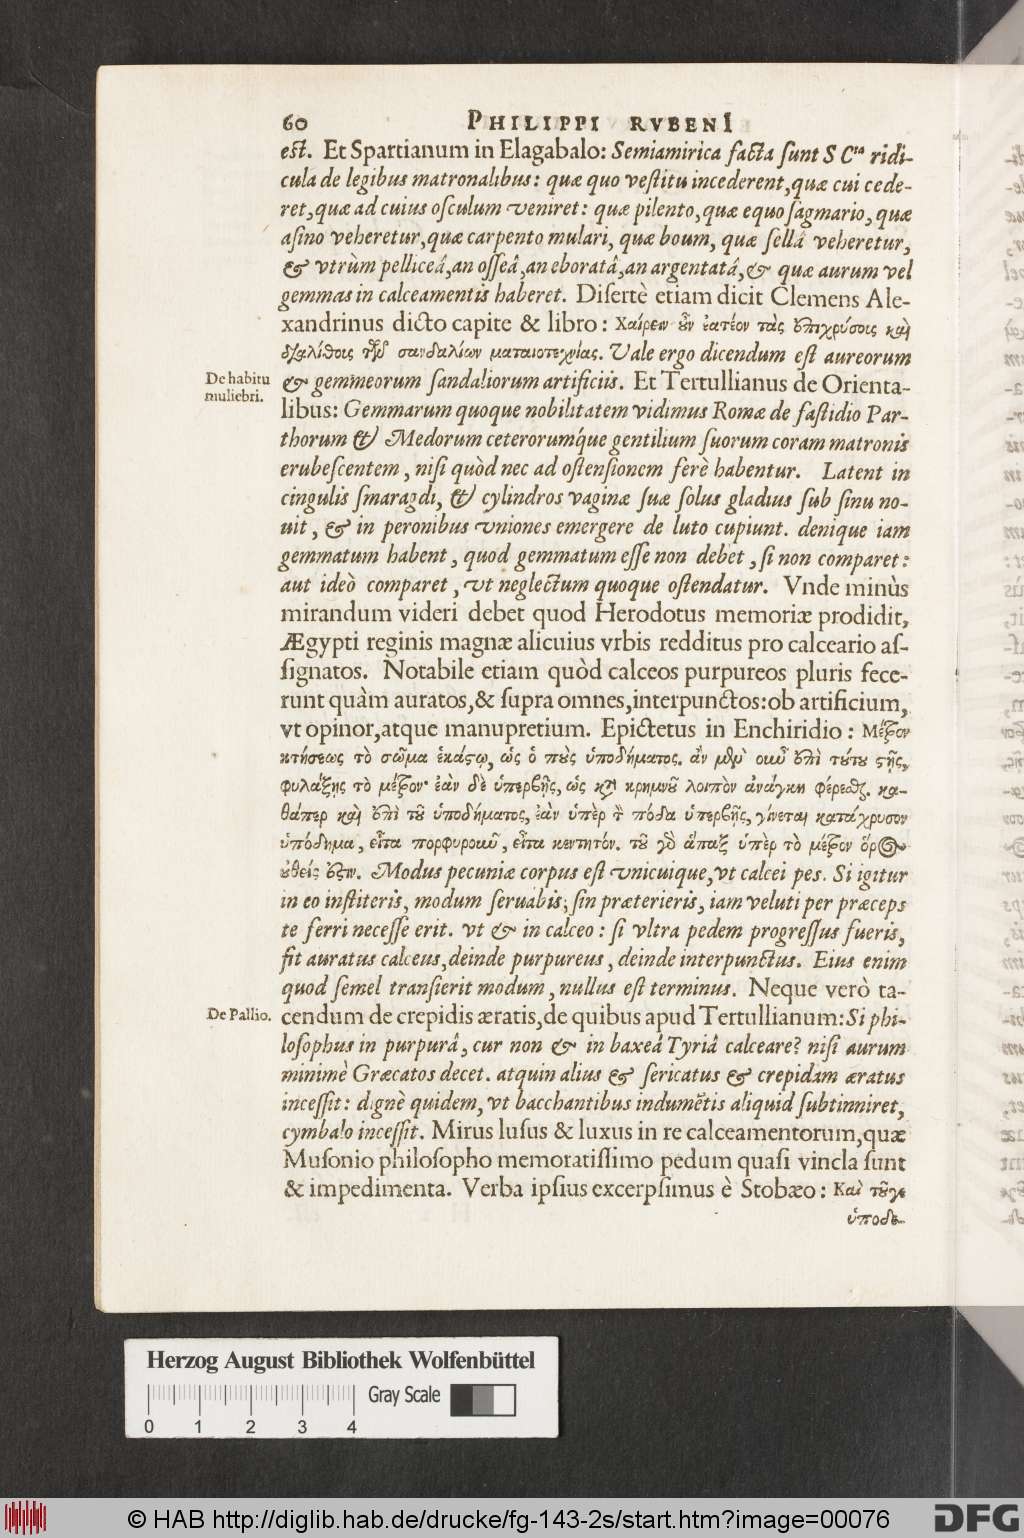 60 PHILIPPI RVBENI
est. Et Spartianum in Elagabalo: Semiamirica facta sunt S Cta ridi-
cula de legibus matronalibus: quæ quo vestitu incederent, quæ cui cede-
ret, quæ ad cuius osculum veniret: quæ pilento, quæ equo sagmario, quæ
asino veheretur, quæ carpento mulari, quæ boum, quæ sellâ veheretur,
& vtrùm pelliceâ, an osseâ, an eboratâ, an argentatâ, & quæ aurum vel
gemmas in calceamentis haberet. Disertè etiam dicit Clemens Ale-
xandrinus dicto capite & libro: Χαίρειν οὖν ἐατέον τὰς ἐπιχρύσοις καὶ
διαλίθοις τῶν σανδαλίων ματαιοτεχνίας. Vale ergo dicendum est aureorum
De habitu
muliebri.
& gemmeorum sandaliorum artificiis. Et Tertullianus de Orienta-
libus: Gemmarum quoque nobilitatem vidimus Romæ de fastidio Par-
thorum & Medorum ceterorumq́ue gentilium suorum coram matronis
erubescentem, nisi quòd nec ad ostensionem ferè habentur. Latent in
cingulis smaragdi, & cylindros vaginæ suæ solus gladius sub sinu no-
uit, & in peronibus vniones emergere de luto cupiunt. denique iam
gemmatum habent, quod gemmatum esse non debet, si non comparet:
aut ideò comparet, vt neglectum quoque ostendatur. Vnde minùs
mirandum videri debet quod Herodotus memoriæ prodidit,
Ægypti reginis magnæ alicuius vrbis redditus pro calceario as-
signatos. Notabile etiam quòd calceos purpureos pluris fece-
runt quàm auratos, & supra omnes, interpunctos: ob artificium,
vt opinor, atque manupretium. Epictetus in Enchiridio: Μέτρον
κτήσεως τὸ σῶμα ἑκάστῳ, ὡς ὁ ποὺς ὑποδήματος. ἂν μὲν οὖν ἐπὶ τούτου στῇς,
φυλάξῃς τὸ μέτρον· ἐὰν δὲ ὑπερβῇς, ὡς κατὰ κρημνοῦ λοιπὸν ἀνάγκη φέρεσθαι. κα-
θάπερ καὶ ἐπὶ τοῦ ὑποδήματος, ἐὰν ὑπὲρ τὸν πόδα ὑπερβῇς, γίνεται κατάχρυσον
ὑπόδημα, εἶτα πορφυροῦν, εἶτα κεντητόν. τοῦ γὰρ ἅπαξ ὑπὲρ τὸ μέτρον ὅρος
οὐθείς ἐστιν. Modus pecuniæ corpus est vnicuique, vt calcei pes. Si igitur
in eo institeris, modum seruabis; sin præterieris, iam veluti per præceps
te ferri necesse erit. vt & in calceo: si vltra pedem progressus fueris,
fit auratus calceus, deinde purpureus, deinde interpunctus. Eius enim
quod semel transierit modum, nullus est terminus. Neque verò ta-
De Pallio.
cendum de crepidis æratis, de quibus apud Tertullianum: Si phi-
losophus in purpurâ, cur non & in baxeâ Tyriâ calceare? nisi aurum
minimè Græcatos decet. atquin alius & sericatus & crepidam æratus
incessit: dignè quidem, vt bacchantibus indumẽtis aliquid subtinniret,
cymbalo incessit. Mirus lusus & luxus in re calceamentorum, quæ
Musonio philosopho memoratissimo pedum quasi vincla sunt
& impedimenta. Verba ipsius excerpsimus è Stobæo: Καὶ τοῦγε
ὑποδε-
Herzog August Bibliothek Wolfenbüttel
Gray Scale
0 1 2 3 4
© HAB http://diglib.hab.de/drucke/fg-143-2s/start.htm?image=00076
DFG